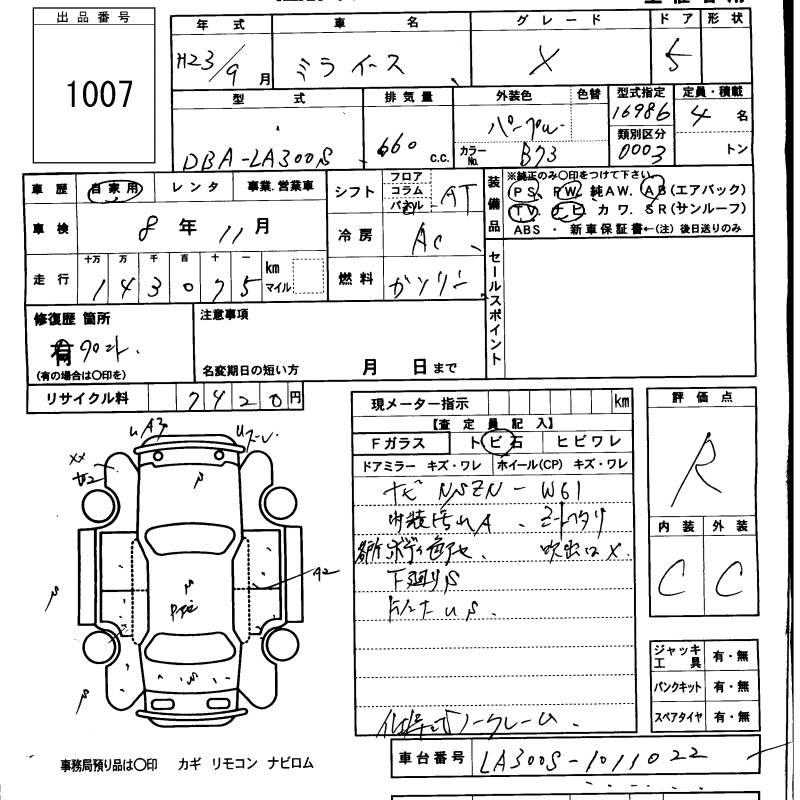 出品番号
1007
年式 車名 グレード ドア 形状
H23/9月 ミライース X 5
型式 排気量 外装色 色替 型式指定 定員・積載
DBA-LA300S 660 c.c. パープル 16986 4名
カラーNo. B73 類別区分 0003 トン
車歴 自家用 レンタ 事業.営業車
車検 8年11月
走行 十万 万 千 百 十 一
143075 km マイル
シフト フロア コラム パネル AT
冷房 AC
燃料 ガソリン
装備品 ※純正のみ○印をつけて下さい。
PS. PW. 純AW. AB(エアバック)
TV. ナビ カワ. SR(サンルーフ)
ABS ・ 新車保証書←(注) 後日送りのみ
セールスポイント
修復歴 箇所
有
(有の場合は○印を)
注意事項
名変期日の短い方 月 日まで
リサイクル料 7420円
現メーター指示 km
【査定員記入】
Fガラス トビ石 ヒビワレ
ドアミラー キズ・ワレ ホイール(CP) キズ・ワレ
ナビ NSZN-W61
内装汚れA.
各所ボディ色アセ. 吹出口 X.
下廻りS
ノークレーム.
評価点
R
内装 外装
C C
ジャッキ工具 有・無
パンクキット 有・無
スペアタイヤ 有・無
A3
A2
事務局預り品は○印 カギ リモコン ナビロム
車台番号 LA300S-1011022